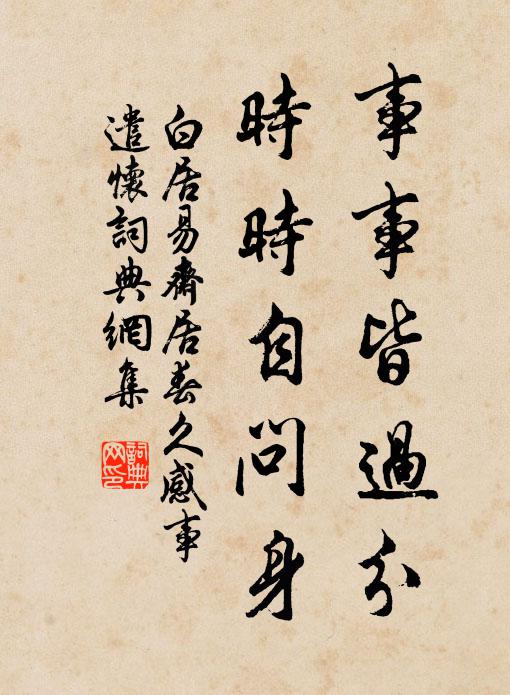 事事皆過分
時時自問身
白居易齋居春久感事
遣懷詞典網集
詞典
网印